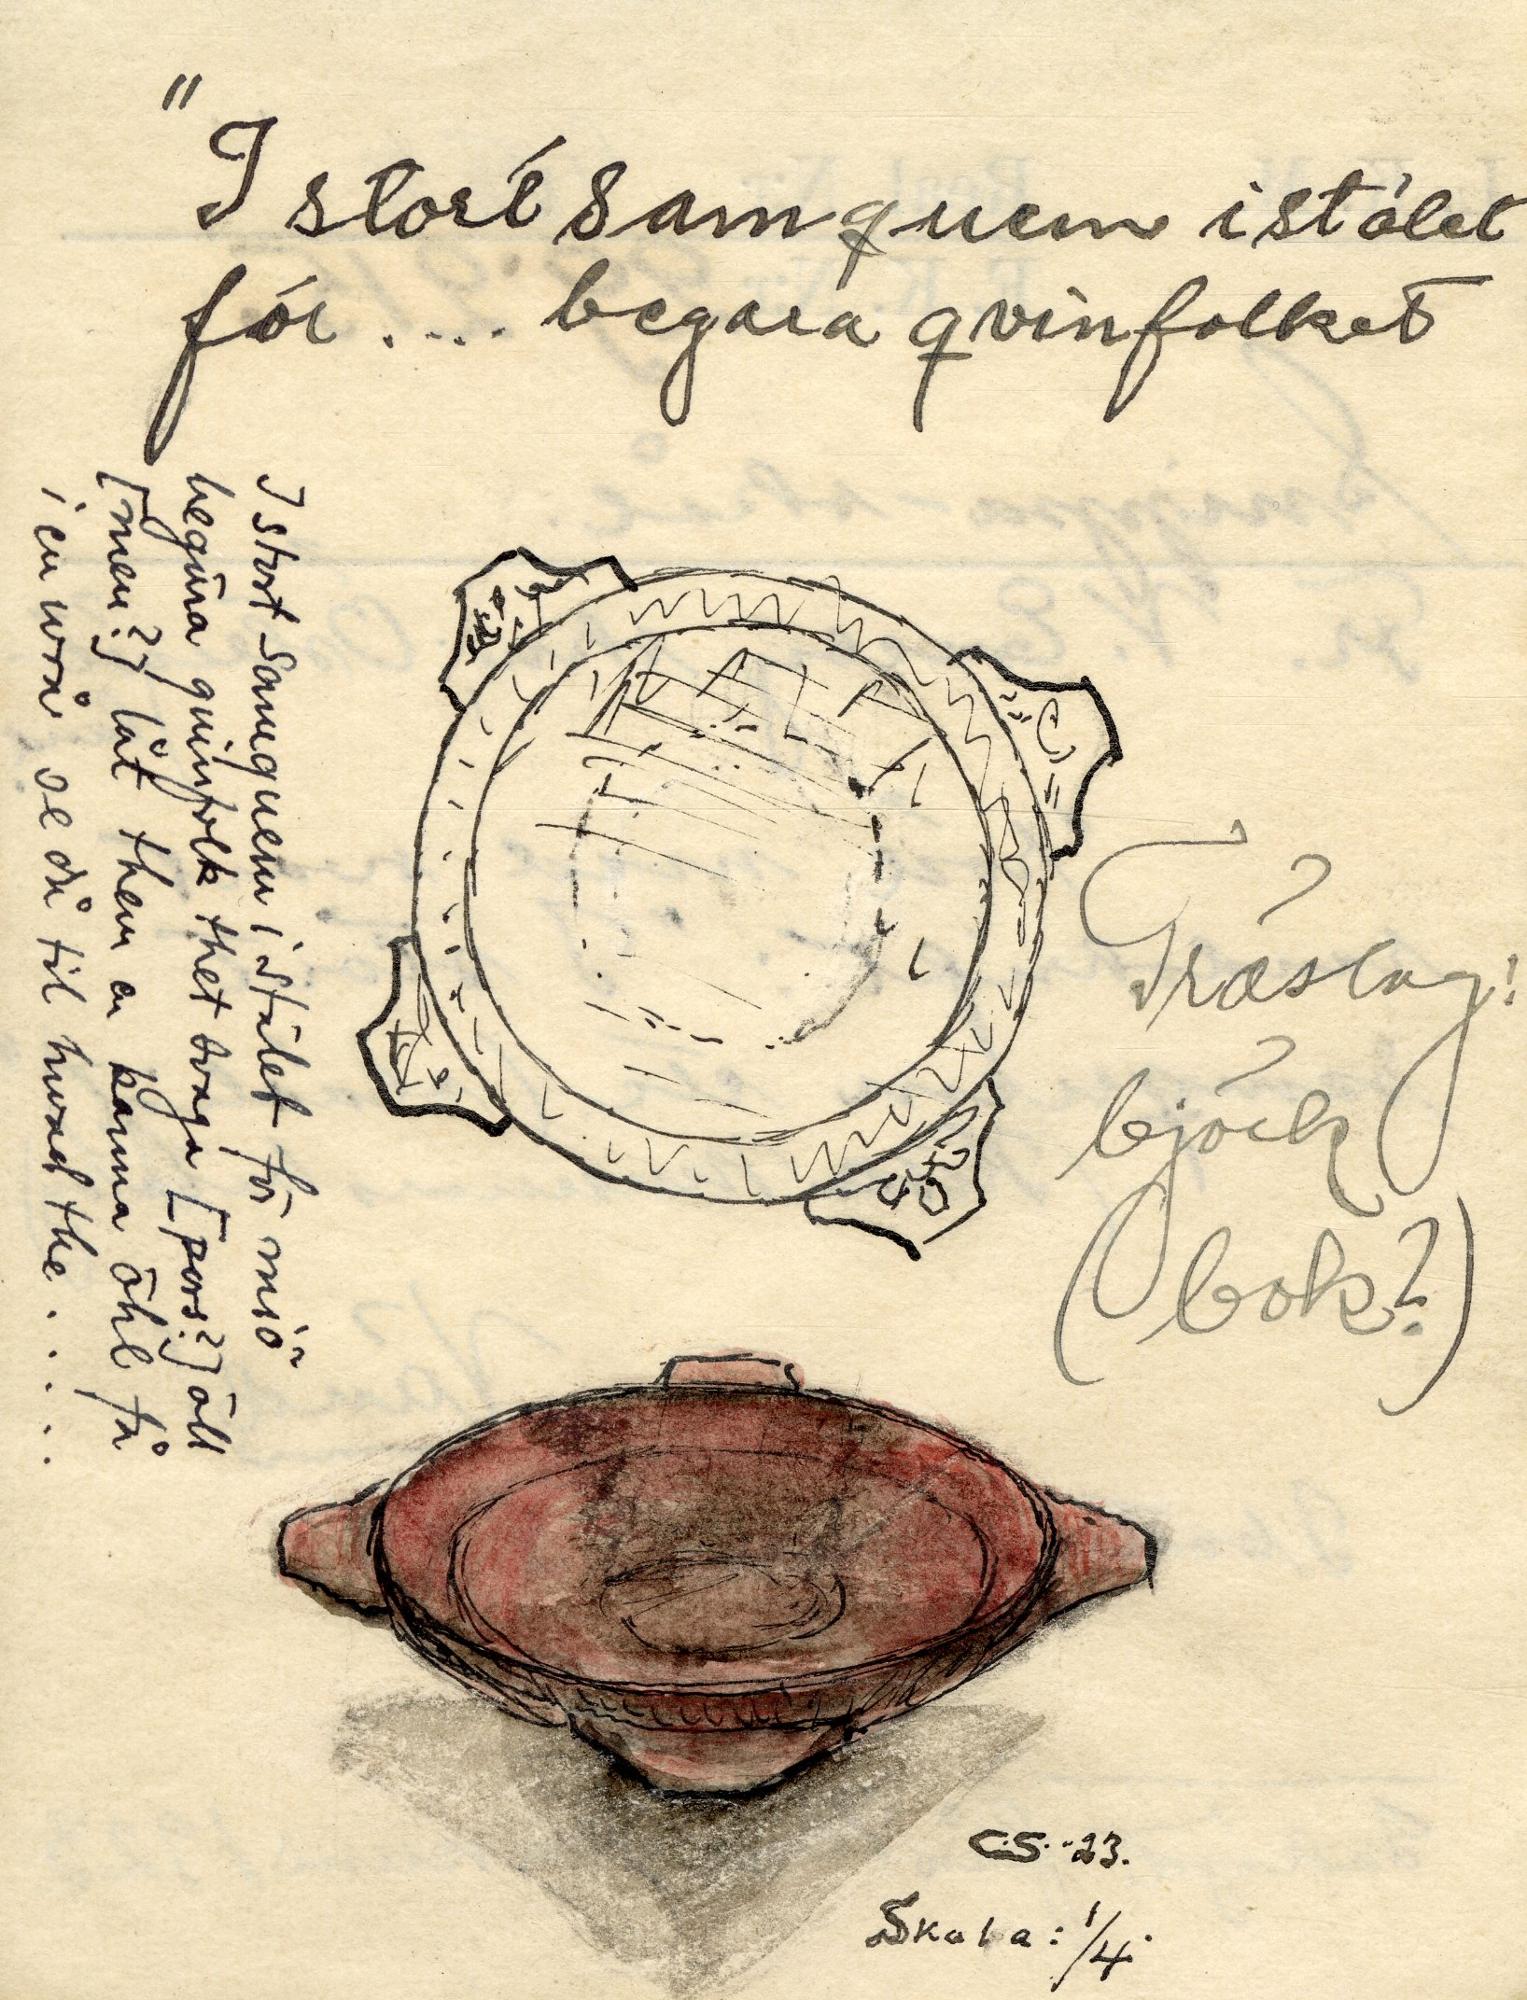 "I stort samquem istôlet
för .... begära qvinfolket
I stort samquem i stålet för miö
begära quinfolk thet svaga [pors?] öll
[men?] låt them en kanna öhl få
i en wrå se du til hwad the . . . .
Träslag:
björk
(bok?)
C.S. -23.
Skala: 1/4.